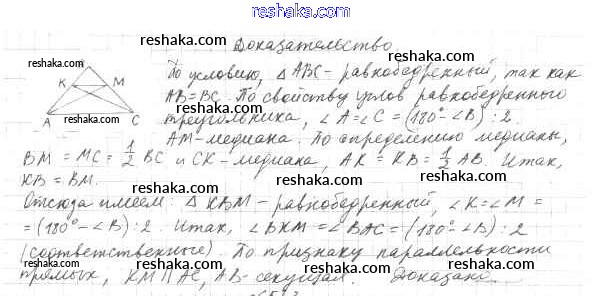 reshaka.com
reshaka.com Доказательство
K M
A C
reshaka.com
По условию, △ABC – равнобедренный, так как
AB = BC. По свойству углов равнобедренного
треугольника, ∠A = ∠C = (180° – ∠B) : 2.
AM – медиана. По определению медианы,
BM = MC = 1/2 BC и CK – медиана, AK = KB = 1/2 AB. Итак,
KB = BM.
Отсюда имеем: △KBM – равнобедренный, ∠K = ∠M =
= (180° – ∠B) : 2 Итак, ∠BKM = ∠BAC = (180° – ∠B) : 2
(соответственные). По признаку параллельности
прямых, KM ∥ AC, AB – секущая. Доказано.
reshaka.com reshaka.com
reshaka.com reshaka.com
reshaka.com reshaka.com
reshaka.com reshaka.com
reshaka.com reshaka.com